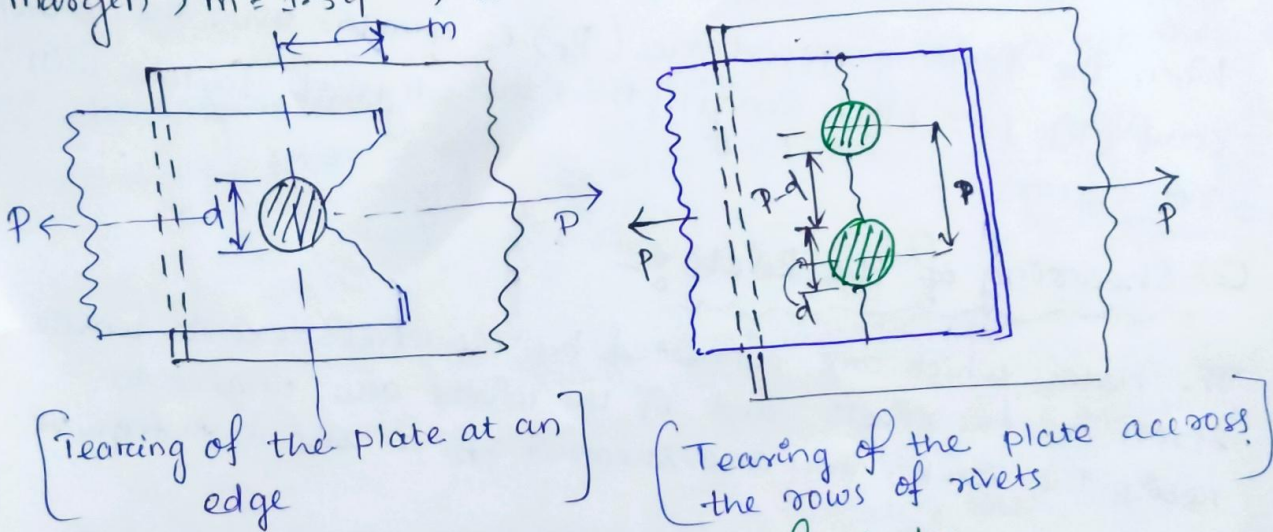 m
d
P
P
P-d
P
d
P
P
[Tearing of the plate at an
edge]
(Tearing of the plate accross
the rows of rivets